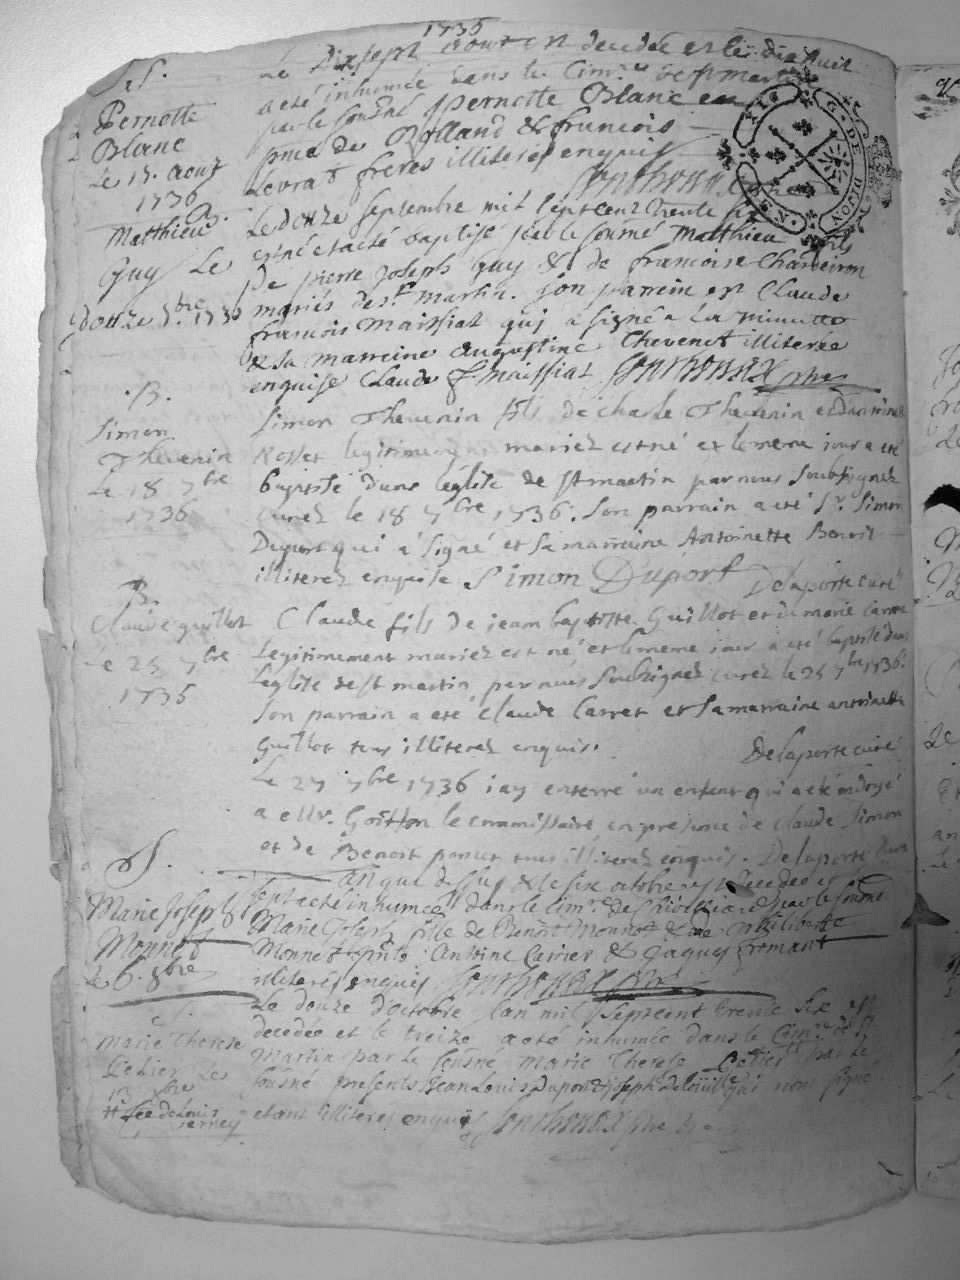 1736
S.
Pernette
Blanc
Le 17. aout
1736
Le Dixsept aout est decedée et le dixhuit
a été inhumée dans le Cim.re de st martin
par le sousné pernette Blanc en
pnce de Rolland & francois
Levrat freres illiterés enquis
Sonthonax
B.
Matthieu
Guy Le
douze 7bre 1736
Le douze septembre mil sept cent trente six
est né et a été baptisé par le sousné Matthieu fils
De pierre joseph Guy & de francoise Charleiron
mariés de st martin. son parrein est Claude
francois Maissiat qui a signé a La minutte
& sa marreine Augustine Chevenet illiterée
enquise Claude f. Maissiat Sonthonax ptre
B.
Simon
Thevenin
Le 18 7bre
1736
Simon Thevenin fils de charle Thevenin et
Rosset legitimement mariez est né et le meme jour a eté
baptisé dans l'eglise de st martin par nous soubsignez
curez le 18 7bre 1736. Son parrain a eté Sr. Simon
Duport qui a signé et sa marraine Antoinette Benoit
illiterez enquise Simon Duport Delaporte curé
B
Claude guillot
le 25 7bre
1736
Claude fils de jean baptiste Guillot et de marie Carret
Legitimement mariez est né et le meme jour a eté baptisé dans
l'eglise de st martin par nous soubsignez curez le 25 7bre 1736.
Son parrain a eté Claude Carret et sa marraine antoinette
Guillot tous illiterez enquis.
Delaporte curé
Le 27 7bre 1736 j ay enterré un enfant qui a eté
a Mr. Goiffon le commissaire en presence de claude Simon
et de Benoit poncet tous illiterez enquis. Delaporte curé
S.
Marie Joseph
Monnet
Le 6. 8bre
An que dessus & le six octobre est decedée et le
sept a eté inhumée dans le Cim.re de par le sousné
Marie Joseph fille de Benoit Monnet & de philiberte
Monnet pnts Antoine Carrier & Jaques Fromant
illiterés enquis Sonthonax ptre
S.
Marie Therese
Pelier Le
13 8bre
# fée de Louis
Le douze d'octobre Lan mil sept cent trente six est
decedée et le treize a eté inhumée dans le Cim.re de st
Martin par Le sousné Marie Therese Pelier # par Le
sousné presents Jean Louis Dupont & joseph qui nont signé
etant illiterés enquis Sonthonax ptre